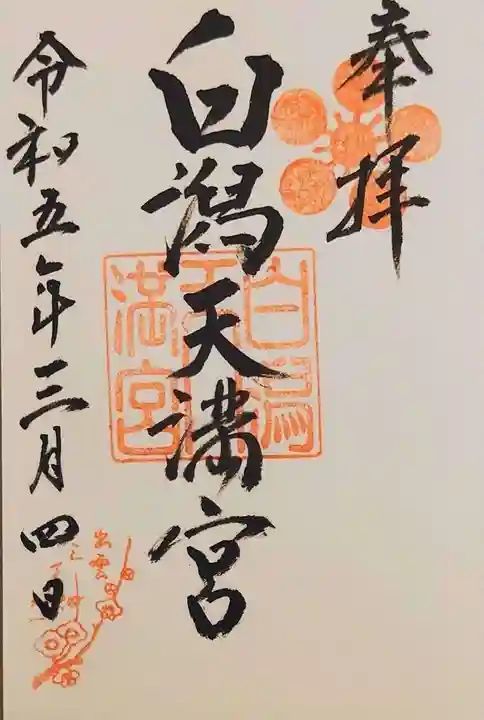 奉拝
白潟天満宮
白潟天満宮
令和五年三月四日
出雲